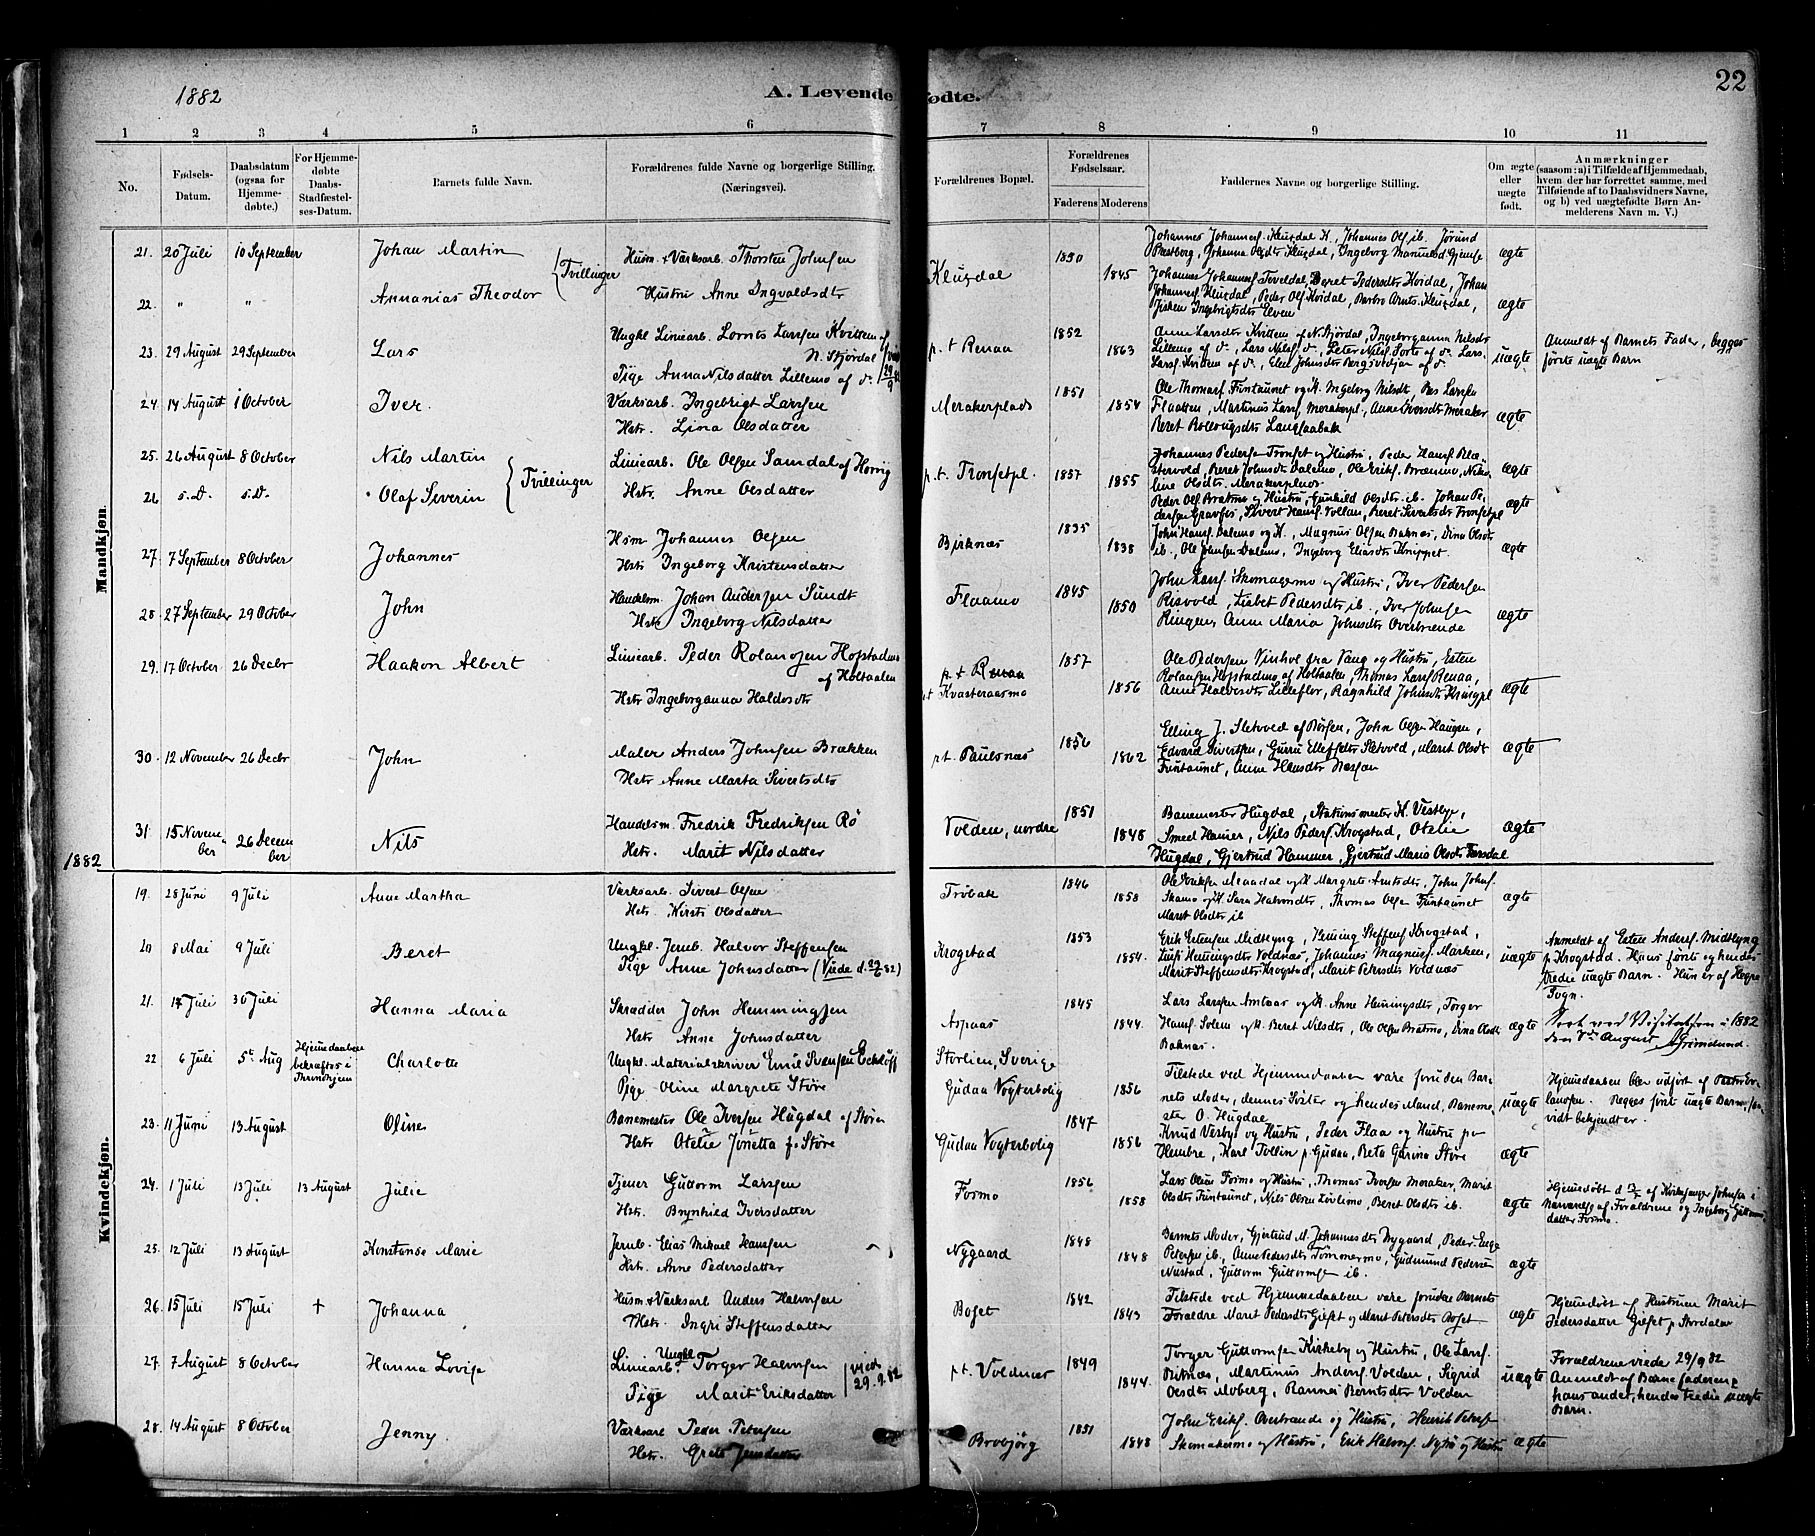 1882
A. Levende fødte.
22
1 2 3 4 5 6 7 8 9 10 11
No.
Fødsels-Datum.
Daabsdatum (ogsaa for Hjemme-døbte.)
For Hjemme-døbte Daabs-Stadfæstel-ses-Datum.
Barnets fulde Navn.
Forældrenes fulde Navne og borgerlige Stilling. (Næringsvei).
Forældrenes Bopæl.
Forældrenes Fødselsaar.
Faderens Moderens
Faddernes Navne og borgerlige Stilling.
Om ægte eller uægte født.
Anmærkninger (saasom: a) i Tilfælde af Hjemmedaab, hvem der har forrettet samme, med Tilføiende af to Daabsvidners Navne, og b) ved uægtefødte Børn An-melderens Navn m. V.)
Mandkjøn.
21. 20 Juli 10 September Johan Martin Husm. & Værksarb. Thorsten Johnsen Klugdal 1850
Johannes Johannesf. Klugdal H., Johannes Olf ib. Jørund
Johanna Olsdtr Klugdal, Ingeborg ægte
Tvillinger
22. " " Annanias Theodor Hustru Anne Ingvaldsdtr 1845
Johannes Johannesf. Teveldal, Beret Pedersdtr Kvidal, Johan
Johannesf. Klugdal, Peder Olf Kvidal, Barbro Arnts. Klugdal,
Ingebrigtsdtr Elven ægte
23. 29 August 29 September Lars Ungkl. Liniearb. Lornts Larssen Kvittem
N. Stjørdal
Pige Anna Nilsdatter Lillemo af do. viet 29/9 82
p. t Renaa 1852 1863
Anne Larsdtr Kvittem af N. Stjørdal, Ingeborganna Nilsdr
Lillemo af do, Lars Nilsf. do, Peter Nilsf. Sorte af do. Lars
Larsf. Kvittem af do, Elen Johnsdtr Bergstedjan af do. uægte
Anmeldt af Barnets Fader, begges
første uægte Barn
24. 14 August 1 October Iver. Værksarb. Ingebrigt Larssen
Hstr. Lina Olsdatter
Merakerplads 1851 1854
Ole Thomasf. Funtaunet og H. Ingeborg Nilsdtr. Lars Larssen
Flaatten, Martinus Larsf. Merakerpl., Anne Iversdtr Meraker
Beret Rollougsdtr Langsaabak ægte
25. 26 August 8 October Nils Martin Liniearb. Ole Olsen Samdal af Horrig
Tvillinger p.t. Tronsetpl. 1857
Johannes Pedersen Tronset og Hustru, Peder Hansf. Blæ-
stervold, Beret Johnsdtr Dalemo, Ole Eriksf. Bræmmo, Niko-
line Olsdtr. Merakerplads. ægte
26 s. D. s. D. Olaf Severin Hstr. Anne Olsdatter 1855
Peder Olf. Bratmo og Hustru, Gunhild Olsdtr. ib. Johan Pe-
dersen Gravfos, Sivert Hansf. Vollan, Beret Sivertsdtr Tronsetpl ægte
27. 7 September 8 October Johannes Hsm Johannes Olsen
Hstr Ingeborg Kristensdatter
Birknæs 1835 1838
John Hansf. Dalemo og H., Magnus Olsen Baknæs, Dina Olsdt
ib., Ole Johnsen Dalemo, Ingeborg Eliasdtr Knippet ægte
28. 27 September 29 October John Handelsm. Johan Andersen Sundt
Hstr Ingeborg Nilsdatter
Flaamo 1845 1850
John Larsf. Skomagermo og Hustru, Iver Pedersen
Risvold, Lisbet Pedersdtr ib., Iver Johnsen
Ringen, Anne Maria Johnsdtr Overtrænde ægte
29. 17 October 26 Decbr Haakon Albert Liniearb. Peder Rolansen Hofstadmo
af Holtaalen
Hstr Ingeborganna Haldosdtr
p. t Renaa
pt Kvasteraasmo 1857 1856
Ole Pedersen Vinhol fra Vang og Hustru, Esten
Rolansen Hofstadmo af Holtaalen, Thomas Larsf Renaa,
Anne Halvorsdtr Lilleflor, Ragnhild Johnsdtr Kringpl ægte
30. 12 November 26 Decbr John Maler Anders Johnsen Brækken
Hstr Anne Marta Sivertsdtr
pt. Paulsnæs 1856 1862
Elling J. Sletvold af Børsen, John Olsen Haugen,
Edvard Sivertsen, Gurru Ellefsdtr Sletvold, Marit Olsdt
Funtaunet, Anne Hansdtr Næsjan ægte
31 15 November 26 December Nils Handelsm. Fredrik Fredriksen Rø
Hstr. Marit Nilsdatter
Volden, nordre 1851 1848
Banemester Hugdal, Stationsmester H. Vestbye,
Smed Hamer, Nils Pedersf. Krogstad, Otelie
Hugdal, Gjertrud Hammer, Gjertrud Maria Olsdtr ægte
1882
Kvindekjøn.
19. 28 Juni 9 Juli Anne Martha Værksarb. Sivert Olsen
Hstr. Kirsti Olsdatter
Trøbak 1846 1858
Ole Eriksen Meadal og H. Margrete Arntsdtr, John Johnsf.
Skamo og H. Sara Halvordtr, Thomas Olsen Funtaunet
Maret Olsdtr ib ægte
20 8 Mai 9 Juli Beret Ungkl. Jernb. Halvor Steffensen
Pige Anne Johnsdatter
Krogstad 1853 1854.
Erik Estensen Midtlyng, Heming Steffensf Krogstad,
Hemingsdtr Voldnæs, Johannes Magnusf. Marken,
Marit Steffensdtr Krogstad, Marit Petersdtr Voldnæs uægte
Anmeldt af Esten Andersf. Midtlyng
p. Krogstad. Hans første og hendes
tredie uægte Barn. Hun er af Hegre
Sogn.
21. 14 Juli 30 Juli Hanna Maria Skrædder John Hemmingsen
Hstr. Anne Johnsdatter
Aspaas 1845 1844.
Lars Larssen Amtaar og H. Anne Hemingsdtr, Torger
Hansf. Solem og H. Beret Nilsdtr, Ole Olsen Bratmo, Dina Olsdt
Baknæs. ægte
Seet ved Visitatsen i 1882
den August Grimelund.
22 6 Juli 5te Aug Hjemmedaaben bekræftes i Throndhjem Charlotte
Ungkl. Materialskriver Emil Svensen Ecklöff
Pige Oline Margrete Støre
Storlien, Sverige
Gudaa Vogterbolig 1856
Tilstede ved Hjemmedaaben vare foruden Bar-
nets Moder, dennes Søster og hendes Mand, Baneme-
ster O. Hugdal uægte
Hjemmedaaben blev udført af
Begges første uægte Barn, saa-
vidt bekjendt er.
23. 11 Juni 13 August Oline Banemester Ole Iversen Hugdal af Støren
Hstr Otelie Jonetta f. Støre
Gudaa Vogterbolig 1847 1856
Knud Vesbye og Hustru, Peder Flaa og Hustru paa
Hembre, Karl Tollin p. Gudaa, Beta Gurina Støre ægte
24. 1 Juli 13 Juli 13 August Julie Tjener Guttorm Larssen
Hstr. Brynhild Iversdatter
Formo 1856 1858
Lars Olsen Formo og Hustru, Thomas Iversen Meraker, Marit
Olsdtr Funtaunet, Nils Olsen Løvlimo, Beret Olsdtr ib. ægte
Hjemmedøbt d. 13/7 af Kirkesanger Johnsen i
Nærværelse af Forældrene og Ingeborg Guttorms-
datter Formo.
25. 12 Juli 13 August Konstanse Marie Jernb. Elias Mikael Hansen
Hstr. Anne Pedersdatter
Nygaard 1848 1848
Barnets Moder, Gjertrud M. Johannesdtr Nygaard, Peder Enge
Petersen ib, Anne Pedersdtr Tømmermo, Gudmund Pedersen
Nustad, Guttorm Guttormsen ib. ægte
26. 15 Juli 15 Juli + Johanna Husm. & Værksarb Anders Halvorsen
Hstr. Ingri Steffensdatter
Boset 1842 1843
Tilstede ved Hjemmedaaben vare foruden Barnets
Forældre Marit Pedersdtr Gilset og Marit Petersdtr Boset ægte
Hjemmedøbt af Hustruen Marit
Pedersdatter Gilset p. Stordalen
27. 7 August 8 October Hanna Lovise Liniearb. Ungkl Torger Halvorsen
Pige Marit Eriksdatter viet 29.9.82
pt. Voldnæs 1849 1844.
Torger Guttormsen Kirkeby og Hustru, Ole Larsf.
Bitnæs, Martinus Andersf. Volden, Sigrid
Olsdtr Moberg, Rannei Berntsdtr Volden uægte
Forældrene viede 29/9 82
Anmeldt af Barnefaderen,
hans andet, hendes tredie uægte
Barn.
28. 14 August 8 October Jenny. Værksarb Peder Petersen
Hstr. Grete Jensdatter
Brobjørg 1851 1848
John Eriksf. Overtrænde og Hustru, Henrik Petersf
Skomakermo og Hustru, Erik Halvorsf. Nytrø og Hustru ægte